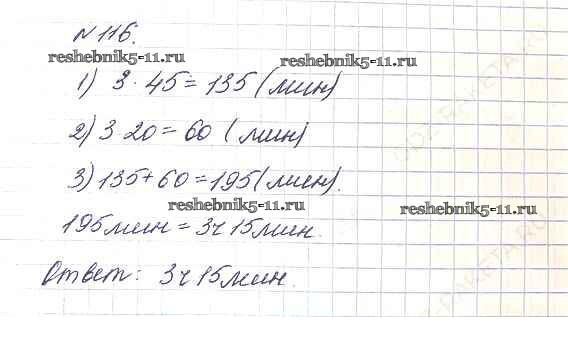 №116.
reshebnik5-11.ru
reshebnik5-11.ru
1) 3 · 45 = 135 (мин)
2) 3 · 20 = 60 (мин)
3) 135 + 60 = 195 (мин).
reshebnik5-11.ru
reshebnik5-11.ru
195 мин = 3ч 15 мин.
Ответ: 3ч 15 мин.
GDZ-RAKETA.RU
Z-RAKETA.RU